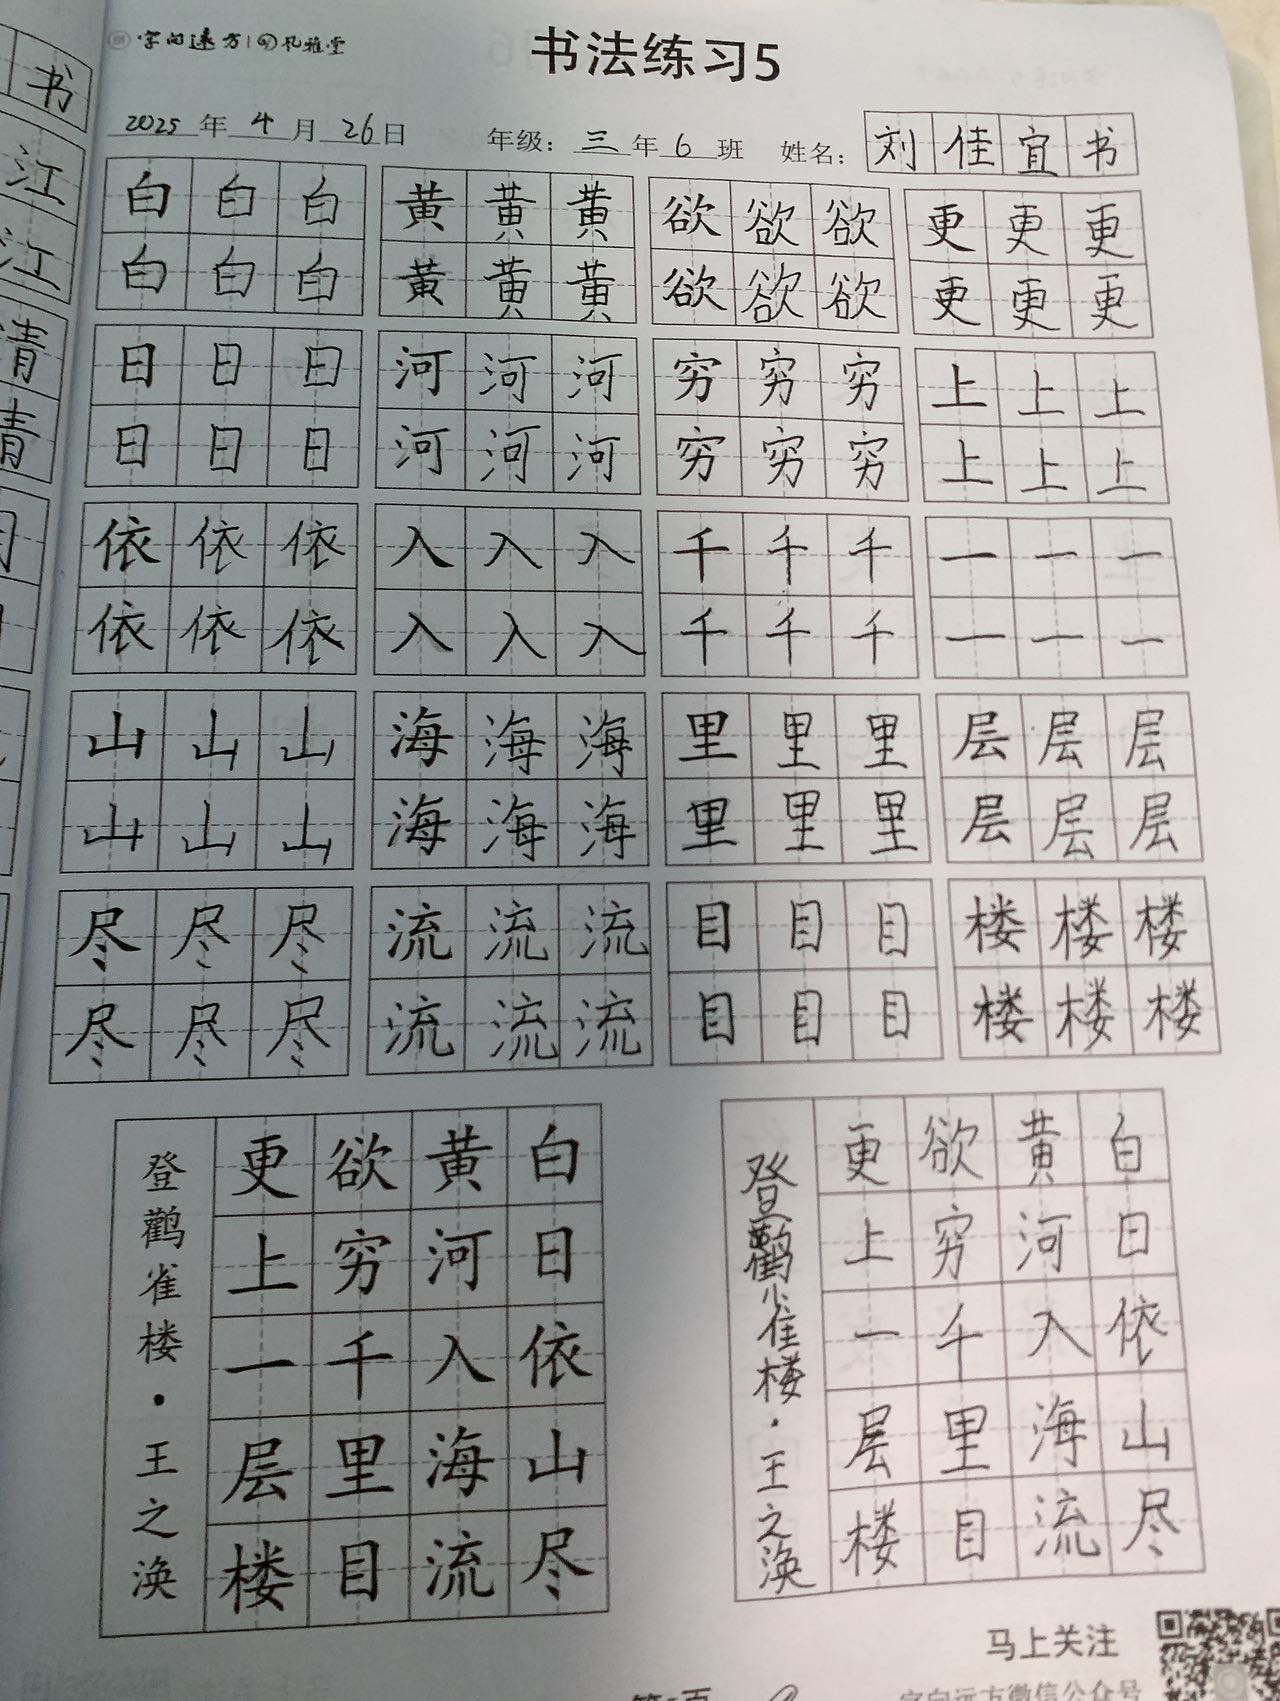 字向远方 孔雅堂
书法练习5
2025年4月26日 年级：三年6班 姓名：刘佳宜书
书
江
江
清
清
白白白 黄黄黄 欲欲欲 更更更
白白白 黄黄黄 欲欲欲 更更更
日日日 河河河 穷穷穷 上上上
日日日 河河河 穷穷穷 上上上
依依依 入入入 千千千 一一一
依依依 入入入 千千千 一一一
山山山 海海海 里里里 层层层
山山山 海海海 里里里 层层层
尽尽尽 流流流 目目目 楼楼楼
尽尽尽 流流流 目目目 楼楼楼
白日依山尽
黄河入海流
欲穷千里目
更上一层楼
登鹳雀楼·王之涣
白日依山尽
黄河入海流
欲穷千里目
更上一层楼
登鹳雀楼·王之涣
马上关注
字向远方微信公众号